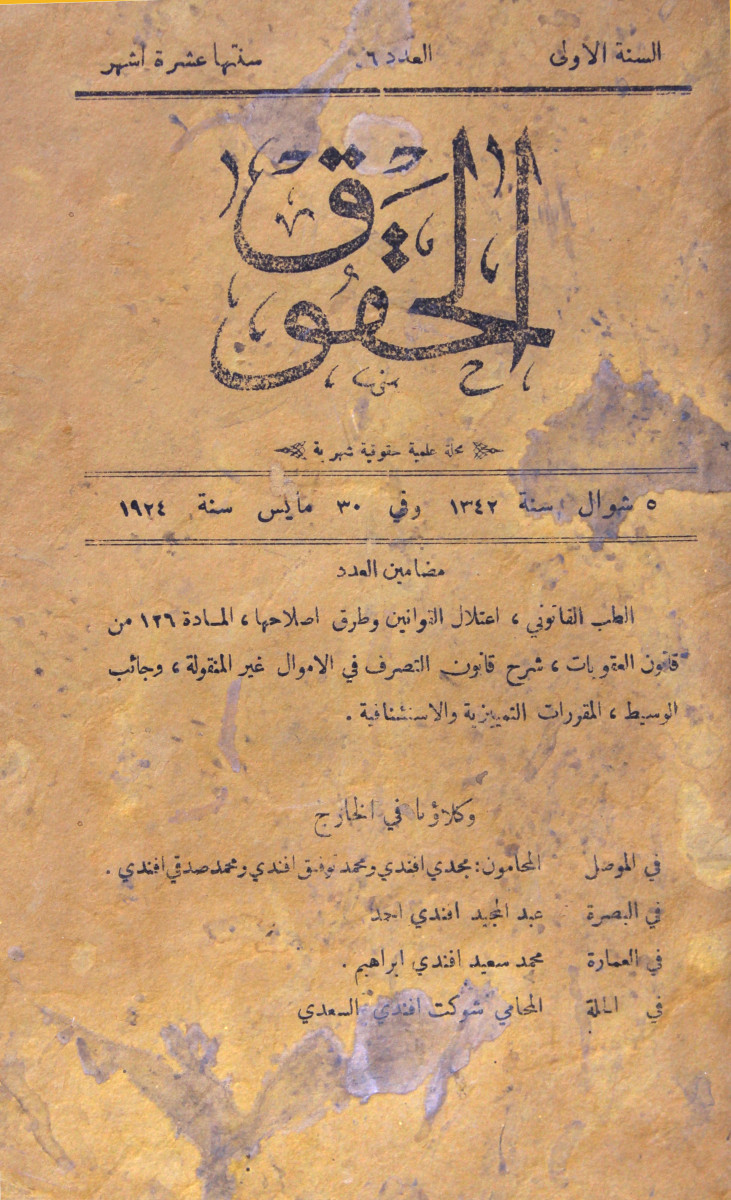 السنة الاولى العدد ٦ سنتها عشرة اشهر
الحقوق
مجلة علمية حقوقية شهرية
٥ شوال سنة ١٣٤٢ وفي ٣٠ مايس سنة ١٩٢٤
مضامين العدد
الطب القانوني ، اعتلال القوانين وطرق اصلاحها ، المادة ١٢٦ من
قانون العقوبات ، شرح قانون التصرف في الاموال غير المنقولة ، وجائب
الوسيط ، المقررات التمييزية والاستئنافية .
وكلاؤنا في الخارج
في الموصل المحامون : مجدي افندي ومحمد توفيق افندي ومحمد صدقي افندي .
في البصرة عبد المجيد افندي احمد
في العمارة محمد سعيد افندي ابراهيم .
في الحلة المحامي شوكت افندي السعدي